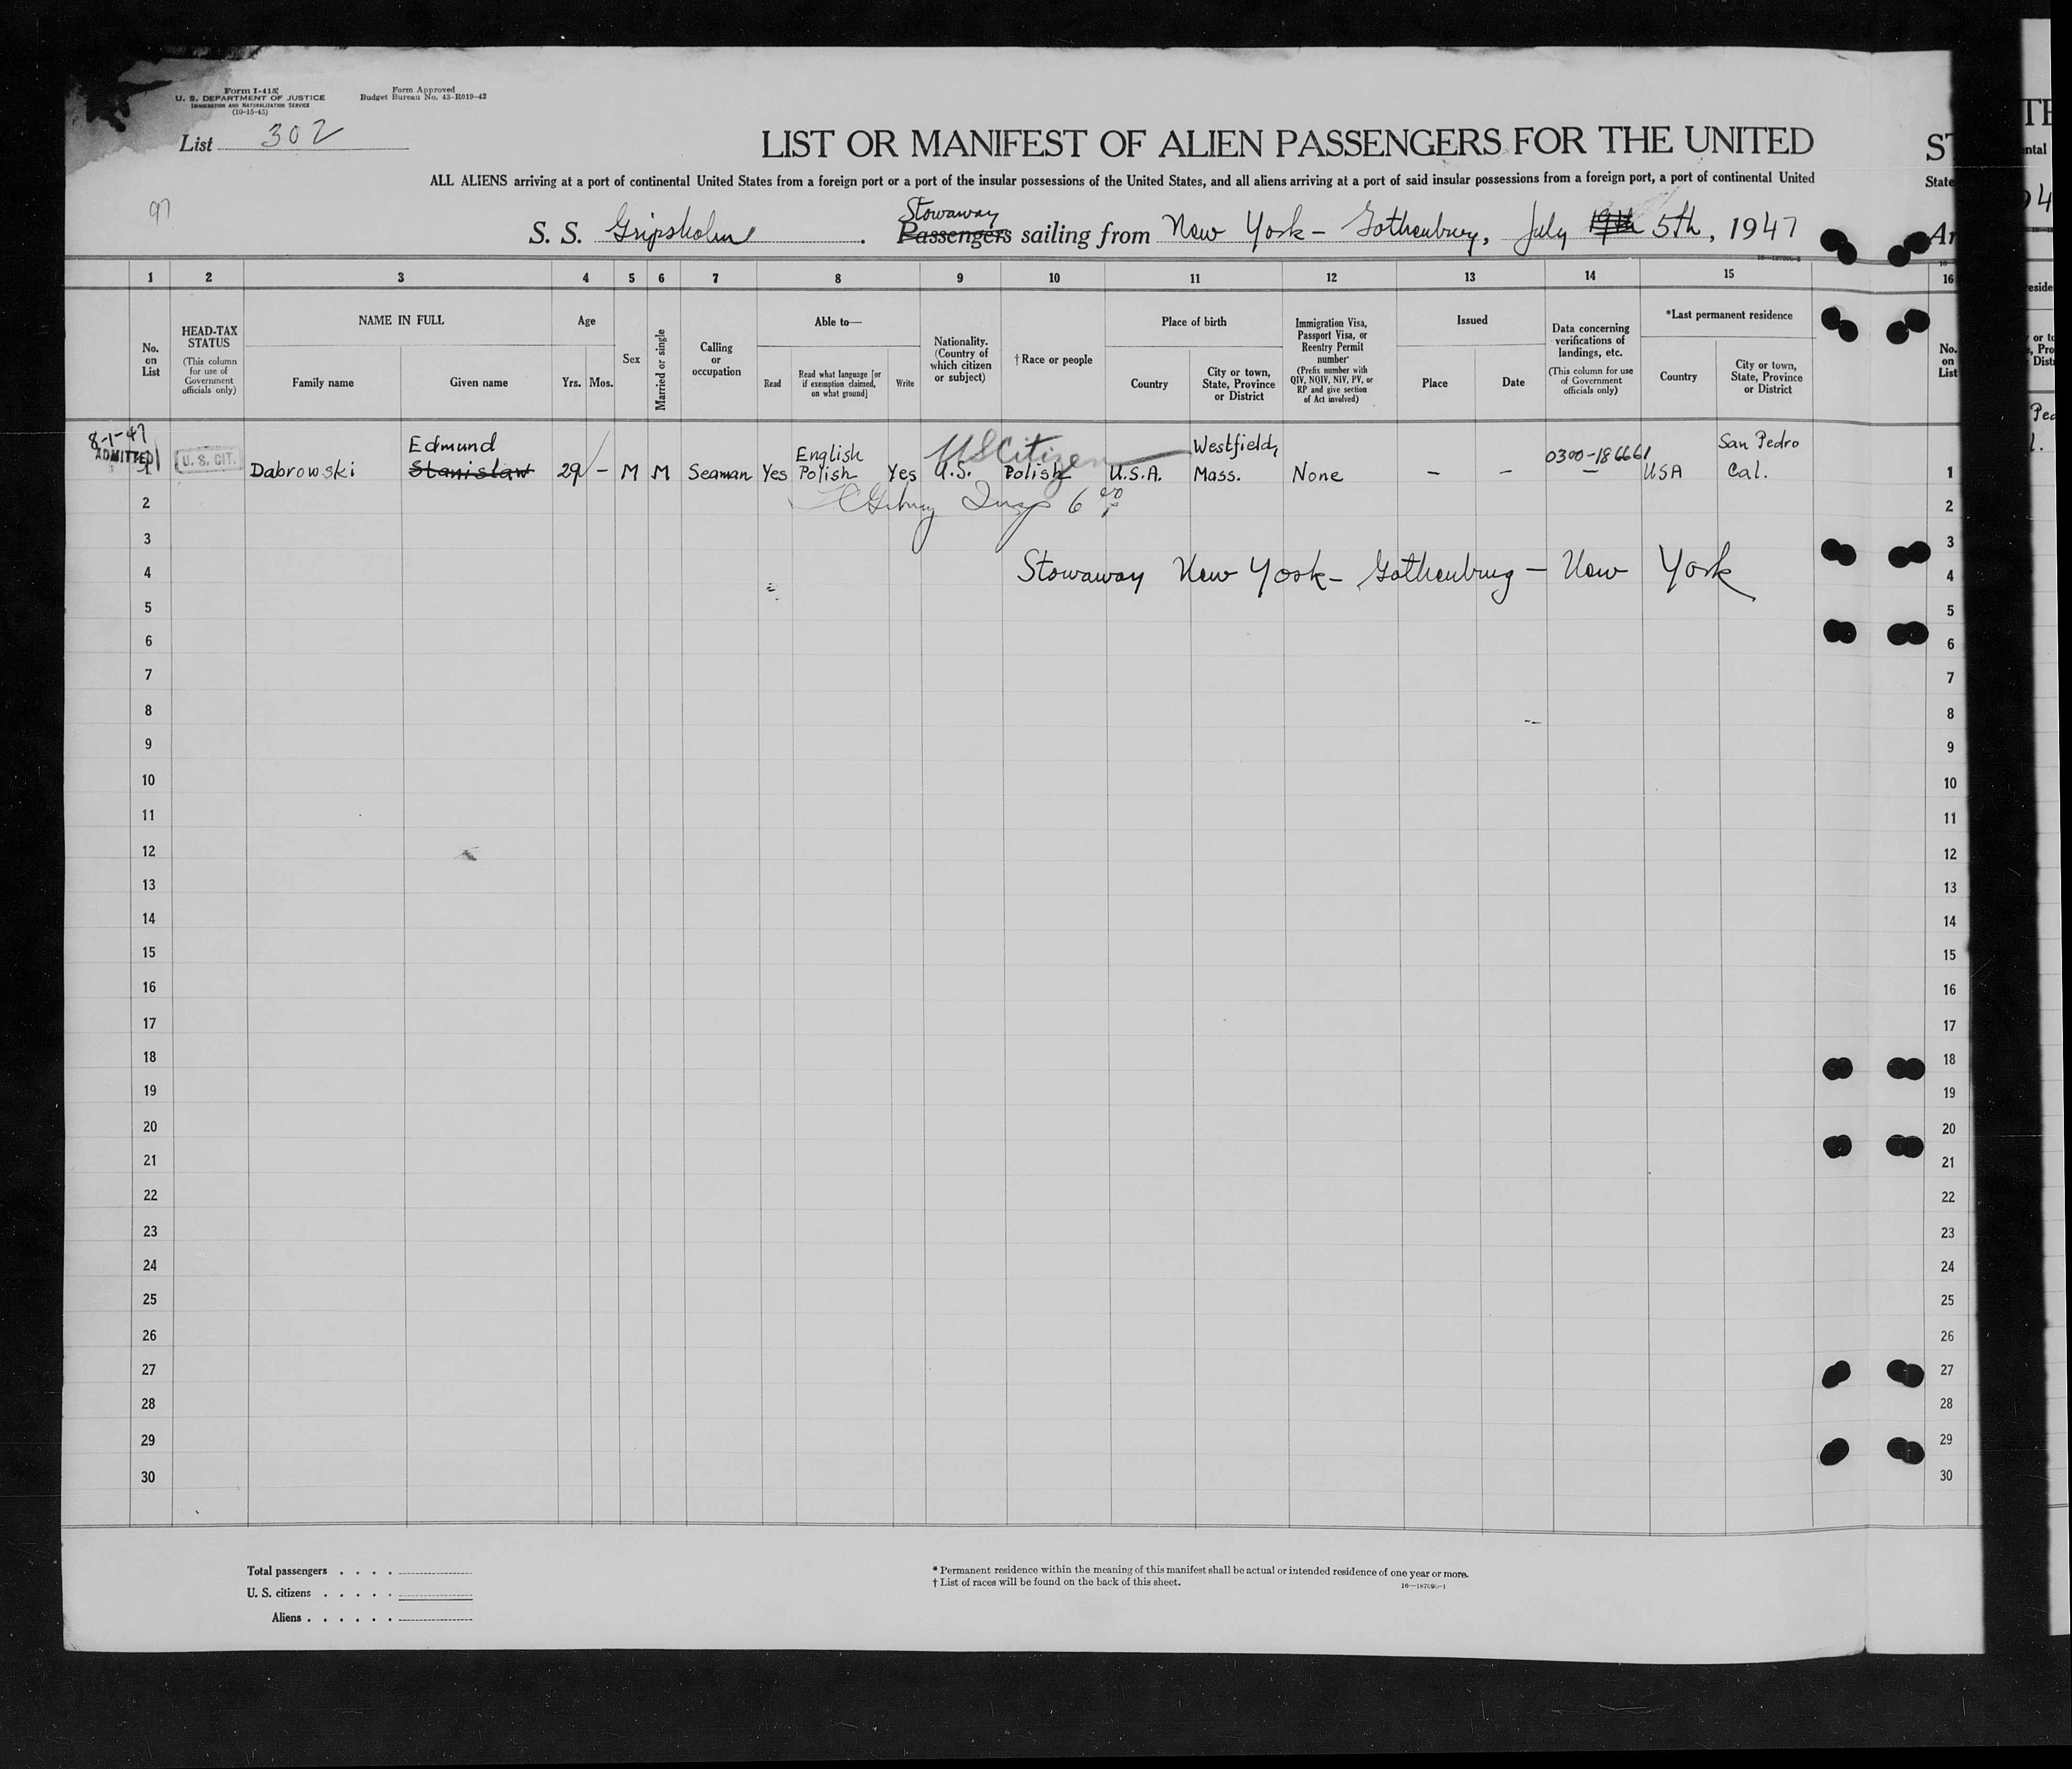 Form I-415
U. S. DEPARTMENT OF JUSTICE
IMMIGRATION AND NATURALIZATION SERVICE
(10-15-45)
Form Approved
Budget Bureau No. 43-R019-42
List 302
LIST OR MANIFEST OF ALIEN PASSENGERS FOR THE UNITED
ALL ALIENS arriving at a port of continental United States from a foreign port or a port of the insular possessions of the United States, and all aliens arriving at a port of said insular possessions from a foreign port, a port of continental United
97
Stowaway
S. S. Gripsholm . Passengers sailing from New York - Gothenburg, July 19th 5th, 1947
1 2 3 4 5 6 7 8 9 10 11 12 13 14 15
No. on List
HEAD-TAX STATUS
(This column for use of Government officials only)
NAME IN FULL
Family name
Given name
Age
Yrs. Mos.
Sex
Married or single
Calling or occupation
Able to—
Read
Read what language [or if exemption claimed, on what ground]
Write
Nationality. (Country of which citizen or subject)
† Race or people
Place of birth
Country
City or town, State, Province or District
Immigration Visa, Passport Visa, or Reentry Permit number
(Prefix number with QIV, NQIV, NIV, PV, or RP and give section of Act involved)
Issued
Place
Date
Data concerning verifications of landings, etc.
(This column for use of Government officials only)
*Last permanent residence
Country
City or town, State, Province or District
8-1-47
ADMITTED
U. S. CIT.
Edmund
English
US Citizen
Westfield,
0300-186661
San Pedro
1 Dabrowski Stanislaw 29 - M M Seaman Yes Polish Yes U.S. Polish U.S.A. Mass. None - - — USA Cal. 1
2 Insp 2
3 3
Stowaway New York - Gothenburg - New York
4 4
5 5
6 6
7 7
8 8
9 9
10 10
11 11
12 12
13 13
14 14
15 15
16 16
17 17
18 18
19 19
20 20
21 21
22 22
23 23
24 24
25 25
26 26
27 27
28 28
29 29
30 30
Total passengers . . . .
U. S. citizens . . . . .
Aliens . . . . . .
* Permanent residence within the meaning of this manifest shall be actual or intended residence of one year or more.
† List of races will be found on the back of this sheet.
ST
State
Ar
16
No. on List